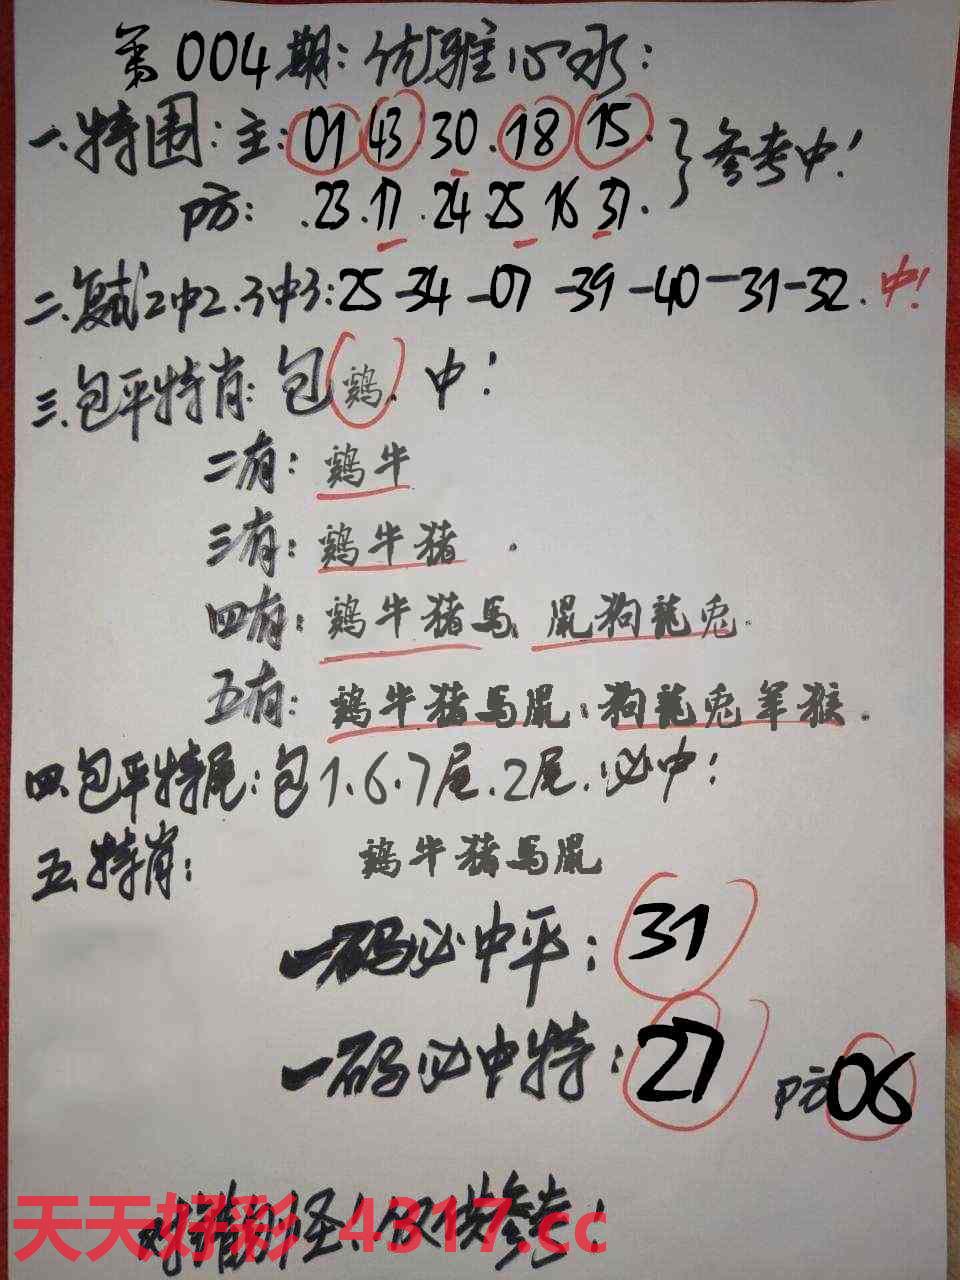 第004期:优雅心水:
一.特围:主:01.43.30.18.15.}参考中!
防:.23.17.24.25 16 37.
二.复试2中2.3中3:25-34-07-39-40-31-32.中!
三.包平特肖:包鷄.中!
二有:鷄牛
三有:鷄牛猪.
四有:鷄牛猪馬 鼠狗龍兎.
五有:鷄牛猪馬鼠:狗龍兎羊猴.
四.包平特尾:包1.6.7尾.2尾.必中!
五.特肖: 鷄牛猪馬鼠
一码必中平:31
一码必中特:27 防06
对错勿怪!仅供参考!
天天好彩 4317.cc